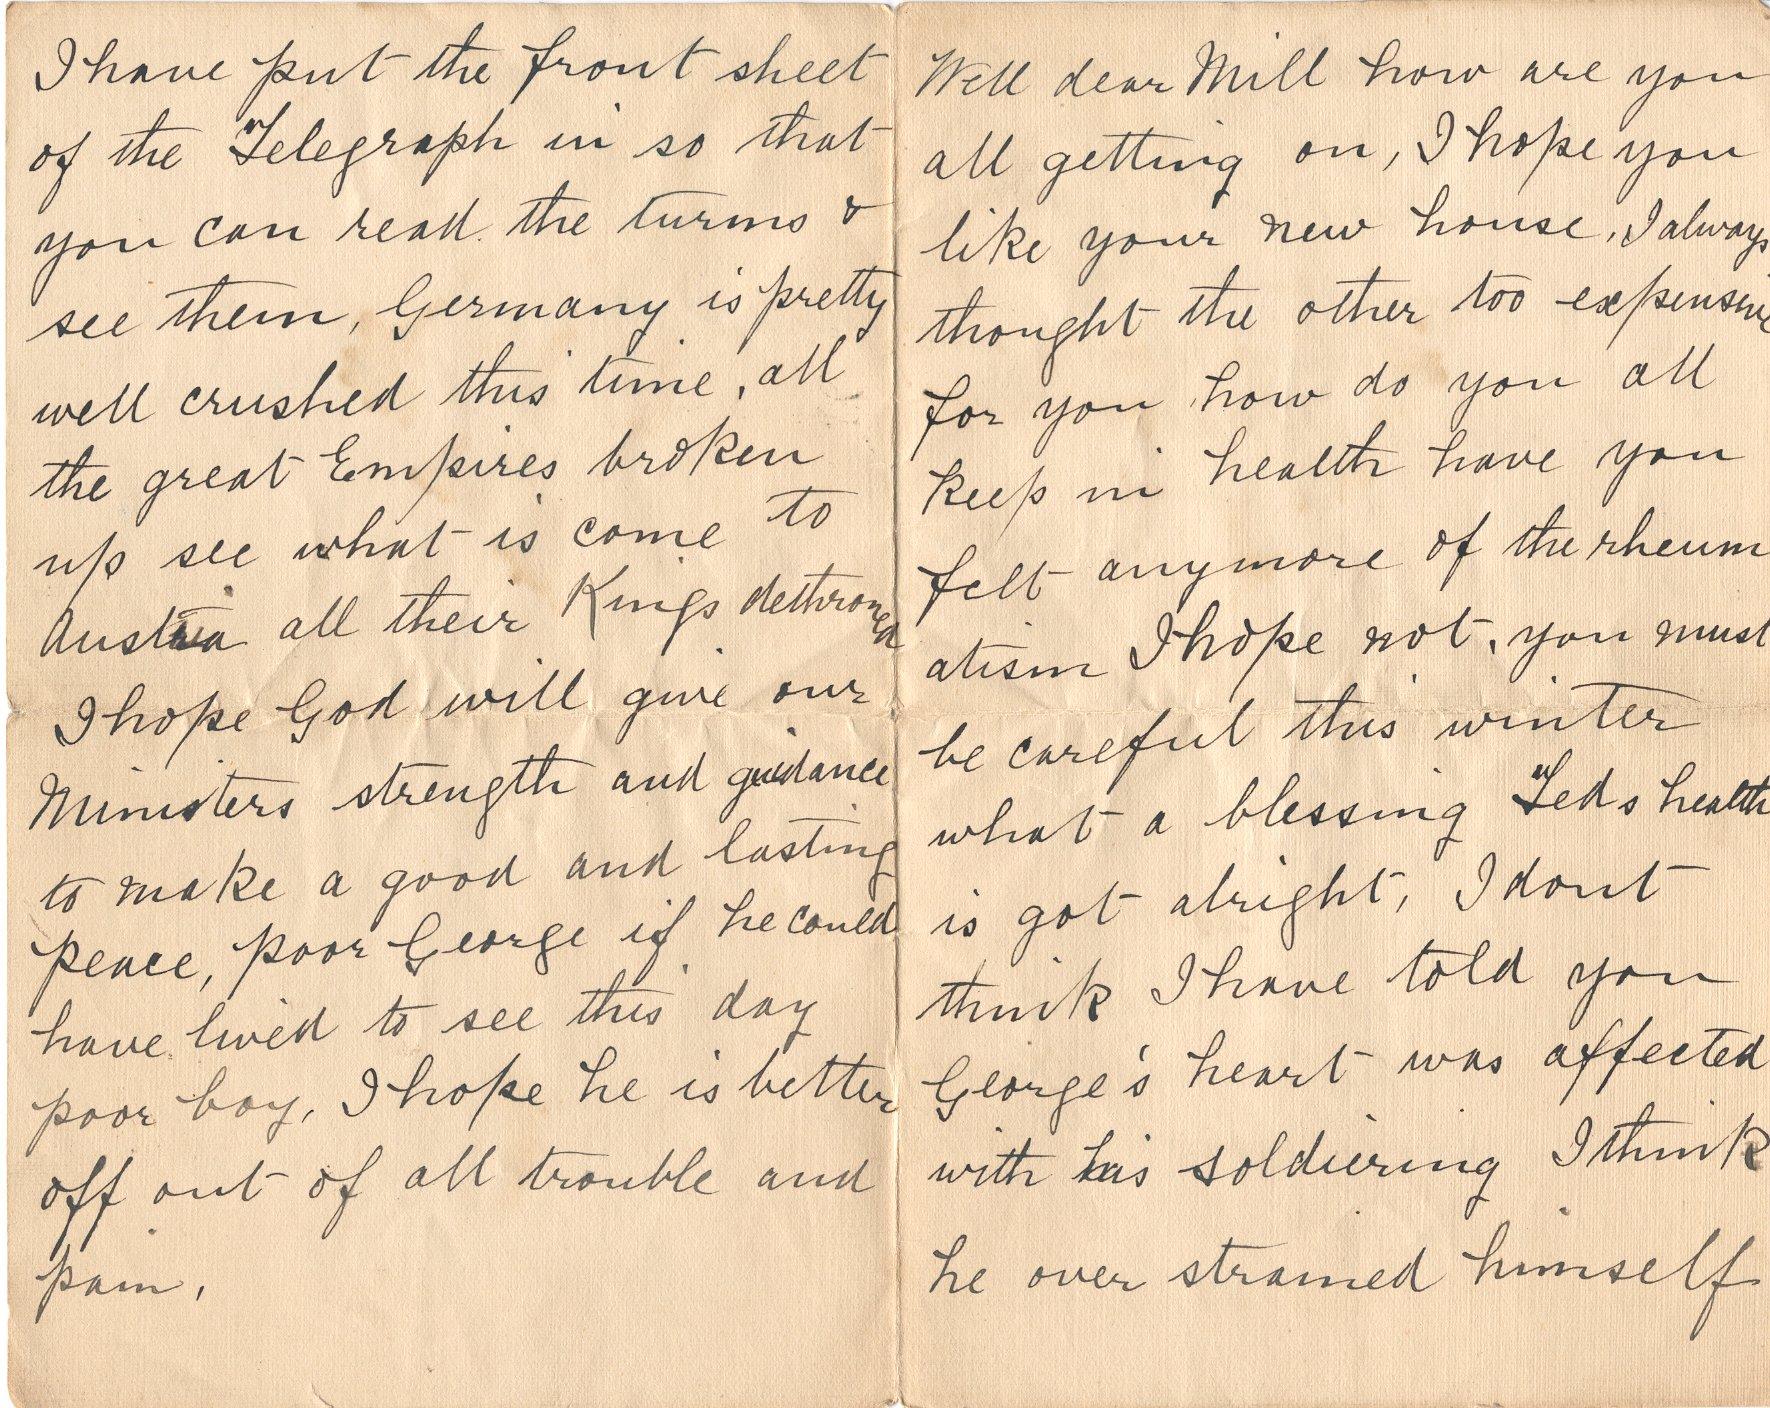 I have put the front sheet
of the Telegraph in so that
you can read the turms &
see them, Germany is pretty
well crushed this time, all
the great Empires broken
up see what is come to
Austria all their Kings dethroned
I hope God will give our
Ministers strength and guidance
to make a good and lasting
peace, poor George if he could
have lived to see this day
poor boy, I hope he is better
off out of all trouble and
pain,
Well dear Mill how are you
all getting on, I hope you
like your new house, I always
thought the other too expensive
for you how do you all
keep in health have you
felt anymore of the rheum
atism I hope not, you must
be careful this winter
what a blessing Teds health
is got alright, I dont
think I have told you
George's heart was affected
with his soldiering I think
he over strained himself